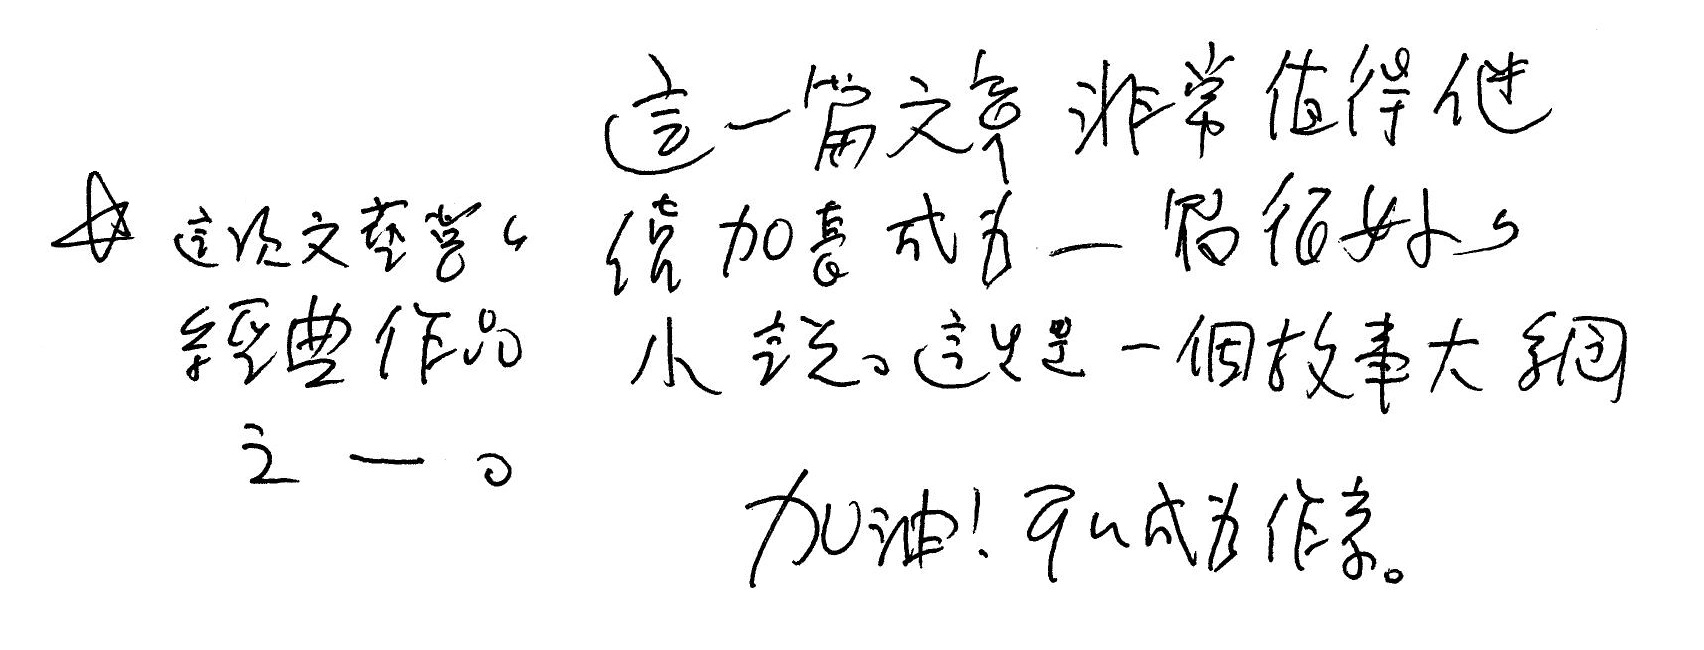 這一篇文章非常值得繼
續加長成為一篇很好的
小說。這只是一個故事大綱
加油!可以成為作家。
☆這次文藝營的
經典作品
之一。